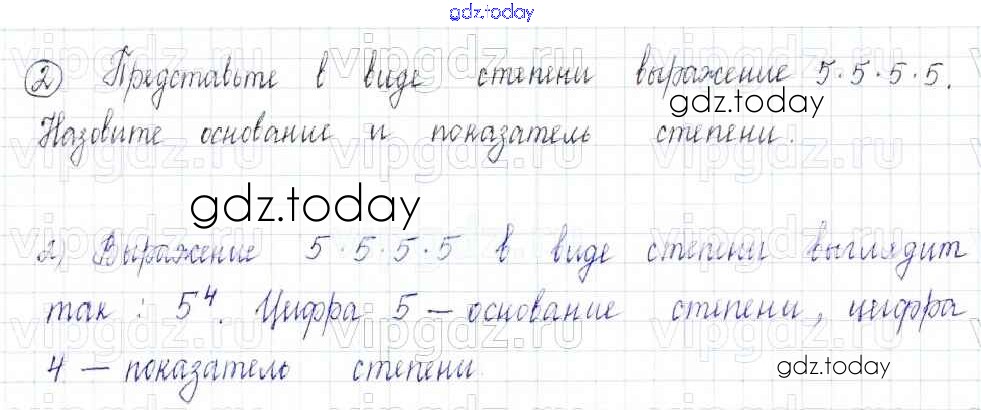 gdz.today
② Представьте в виде степени выражение 5·5·5·5.
gdz.today
Назовите основание и показатель степени.
gdz.today
2) Выражение 5·5·5·5 в виде степени выглядит
так: 5⁴. Цифра 5 — основание степени, цифра
4 — показатель степени.
gdz.today